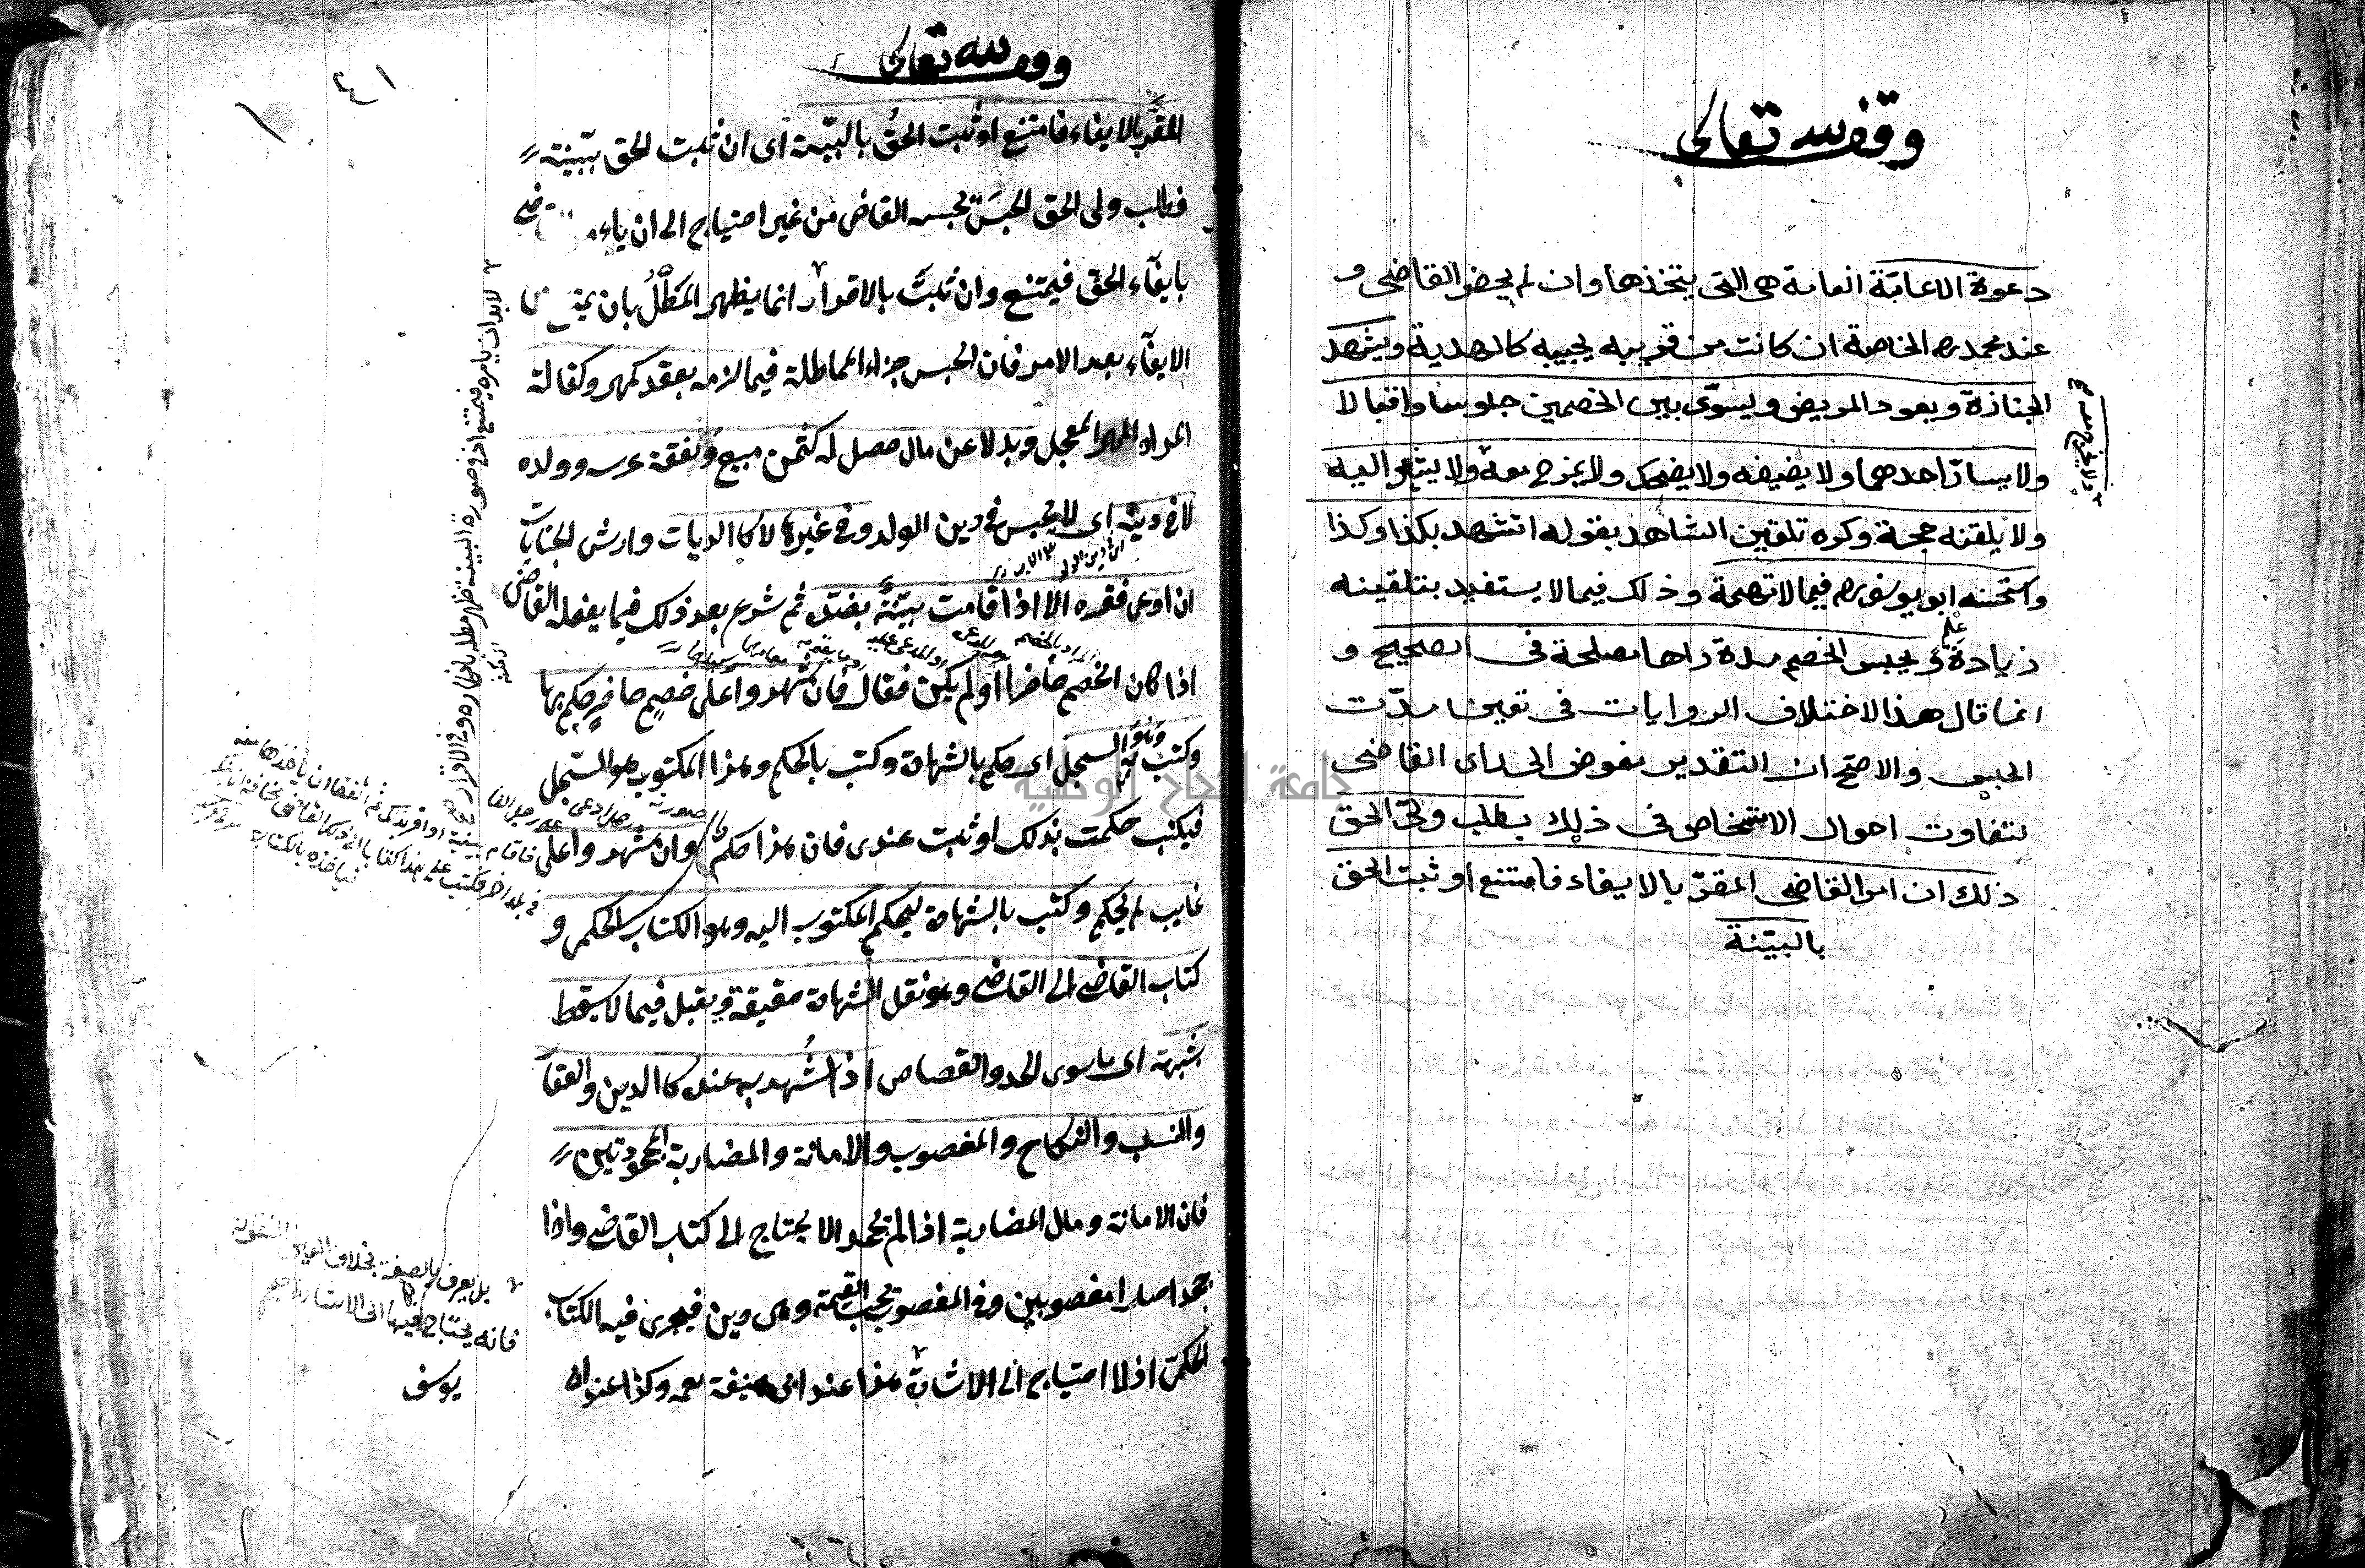 وقف لله تعالى
دعوة الا عامّة العامة هى التى يتخذها وان لم يحضر القاضى و
عند محمد ره الخاصة ان كانت من قريبه يجيبه كالهدية ويشهد
الجنازة ويعود المريض ويسوّى بين الخصمين جلوسا واقبالا
ولا يسارّ احدهما ولا يضيفه ولا يضحك ولا يمزح معه ولا يشير اليه
ولا يلقنه حجة وكره تلقين الشاهد بقوله اتشهد بكذا وكذا
واستحسنه ابو يوسف ره فيما لا تهمة وذلك فيما لا يستفيد بتلقينه
زيادة علم ويحبس الخصم مدة راها مصلحة فى الصحيح و
انما قال هذا لاختلاف الروايات فى تعيين مدّت
الحبس والاصحّ ان التقدير مفوض الى راى القاضى
لتفاوت احوال الاشخاص فى ذلك بطلب ولىّ الحق
ذلك ان امر القاضى المقرّ بالايفاء فامتنع او ثبت الحق
بالبيّنة
جامعة النجاح الوطنية
وقف لله تعالى
٢٤١
المقرّ بالايفاء فامتنع او ثبت الحق بالبيّنة اى ان ثبت الحق ببيّنة
فطلب ولى الحق الحبس يحبسه القاضى من غير احتياج الى ان يامر
بايفاء الحق فيمتنع وان ثبت بالاقرار انما يظهر المطل بان يمتنع
الايفاء بعد الامر فان الحبس جزاء المماطلة فيما لزمه بعقد كمهر وكفالة
المراد المهر المعجل وبدلا عن مال حصل له كثمن مبيع ونفقة عرسه وولده
لا فى دينه اى لا يحبس فى دين الولد وفى غيرها لا كالديات وارش الجنايات
ان ادعى فقره الا اذا قامت بيّنة بضده ثم شرع بعد ذلك فيما يفعله القاضى
اذا كان الخصم حاضرا او لم يكن فقال فان شهدوا على خصم حاضر حكم بها
وكتب به وهو السجل اى حكم بالشهادة وكتب بالحكم وهذا المكتوب هو السجل
فيكتب حكمت بذلك او ثبت عندى فان هذا حكم وان شهدوا على
غايب لم يحكم وكتب بالشهادة ليحكم المكتوب اليه وهو الكتاب الحكمى و
كتاب القاضى الى القاضى وهو نقل الشهادة حقيقة ويقبل فيما لا يسقط
شبهة اى ما سوى الحد والقصاص اذا شهد به عنده كالدين والعقار
والنسب والنكاح والمغصوب والامانة والمضاربة المجحودتين
فان الامانة ومال المضاربة اذا لم يجحدا لا يحتاج الى كتاب القاضى واذا
جحدا صارا مغصوبين وفى المغصوب يجب القيمة وهى دين فيجرى فيه الكتاب
الحكمى اذ لا احتياج الى الاشارة هذا عند ابى حنيفة رحمه وكذا عند ابى
يوسف
لا بد ان يامره فيمتنع اذ فى صورة البينة ظهر مطله بانكاره وفى الاقرار
بل يعرف بالصفة بخلاف العين المنقولة
فانه يحتاج فيها الى الاشارة